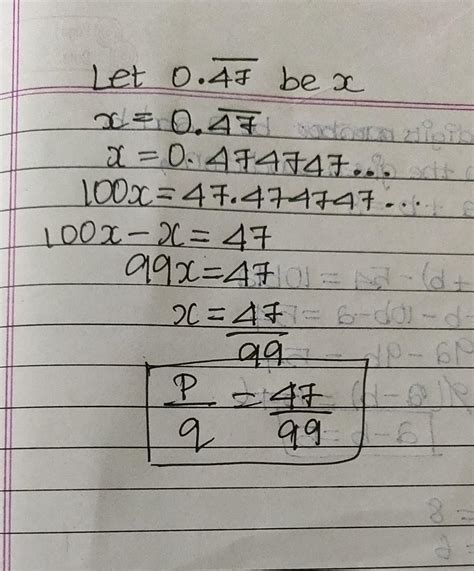 Let 0.4̅7̅ be x
x = 0.4̅7̅
x = 0.474747...
100x = 47.474747...
100x - x = 47
99x = 47
x = 47/99
p/q = 47/99